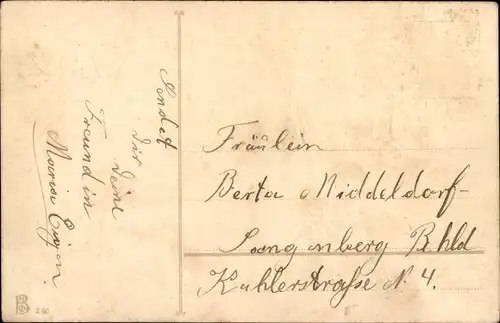 Sendet
dir Deine
Freundin
Maria
Fräulein
Berta Middeldorf-
Langenberg Rhld
Kuhlerstraße N. 4.